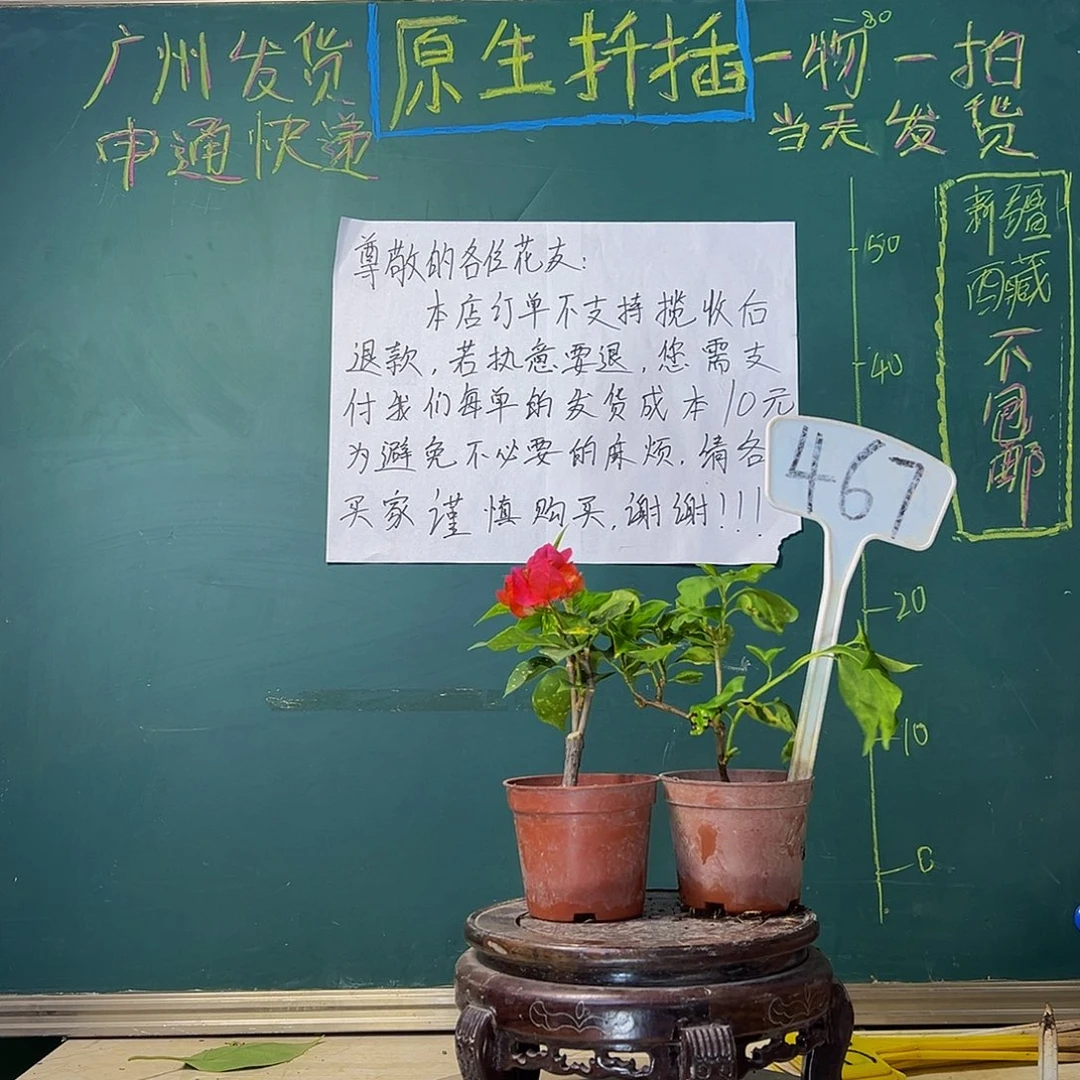 广州发货
申通快递
原生扦插
一物一拍
当天发货
新疆
西藏
不
包
邮
尊敬的各位花友:
本店订单不支持揽收后
退款,若执意要退,您需支
付我们每单的发货成本10元
为避免不必要的麻烦.请各
买家谨慎购买,谢谢!!!
467
50
40
20
10
0